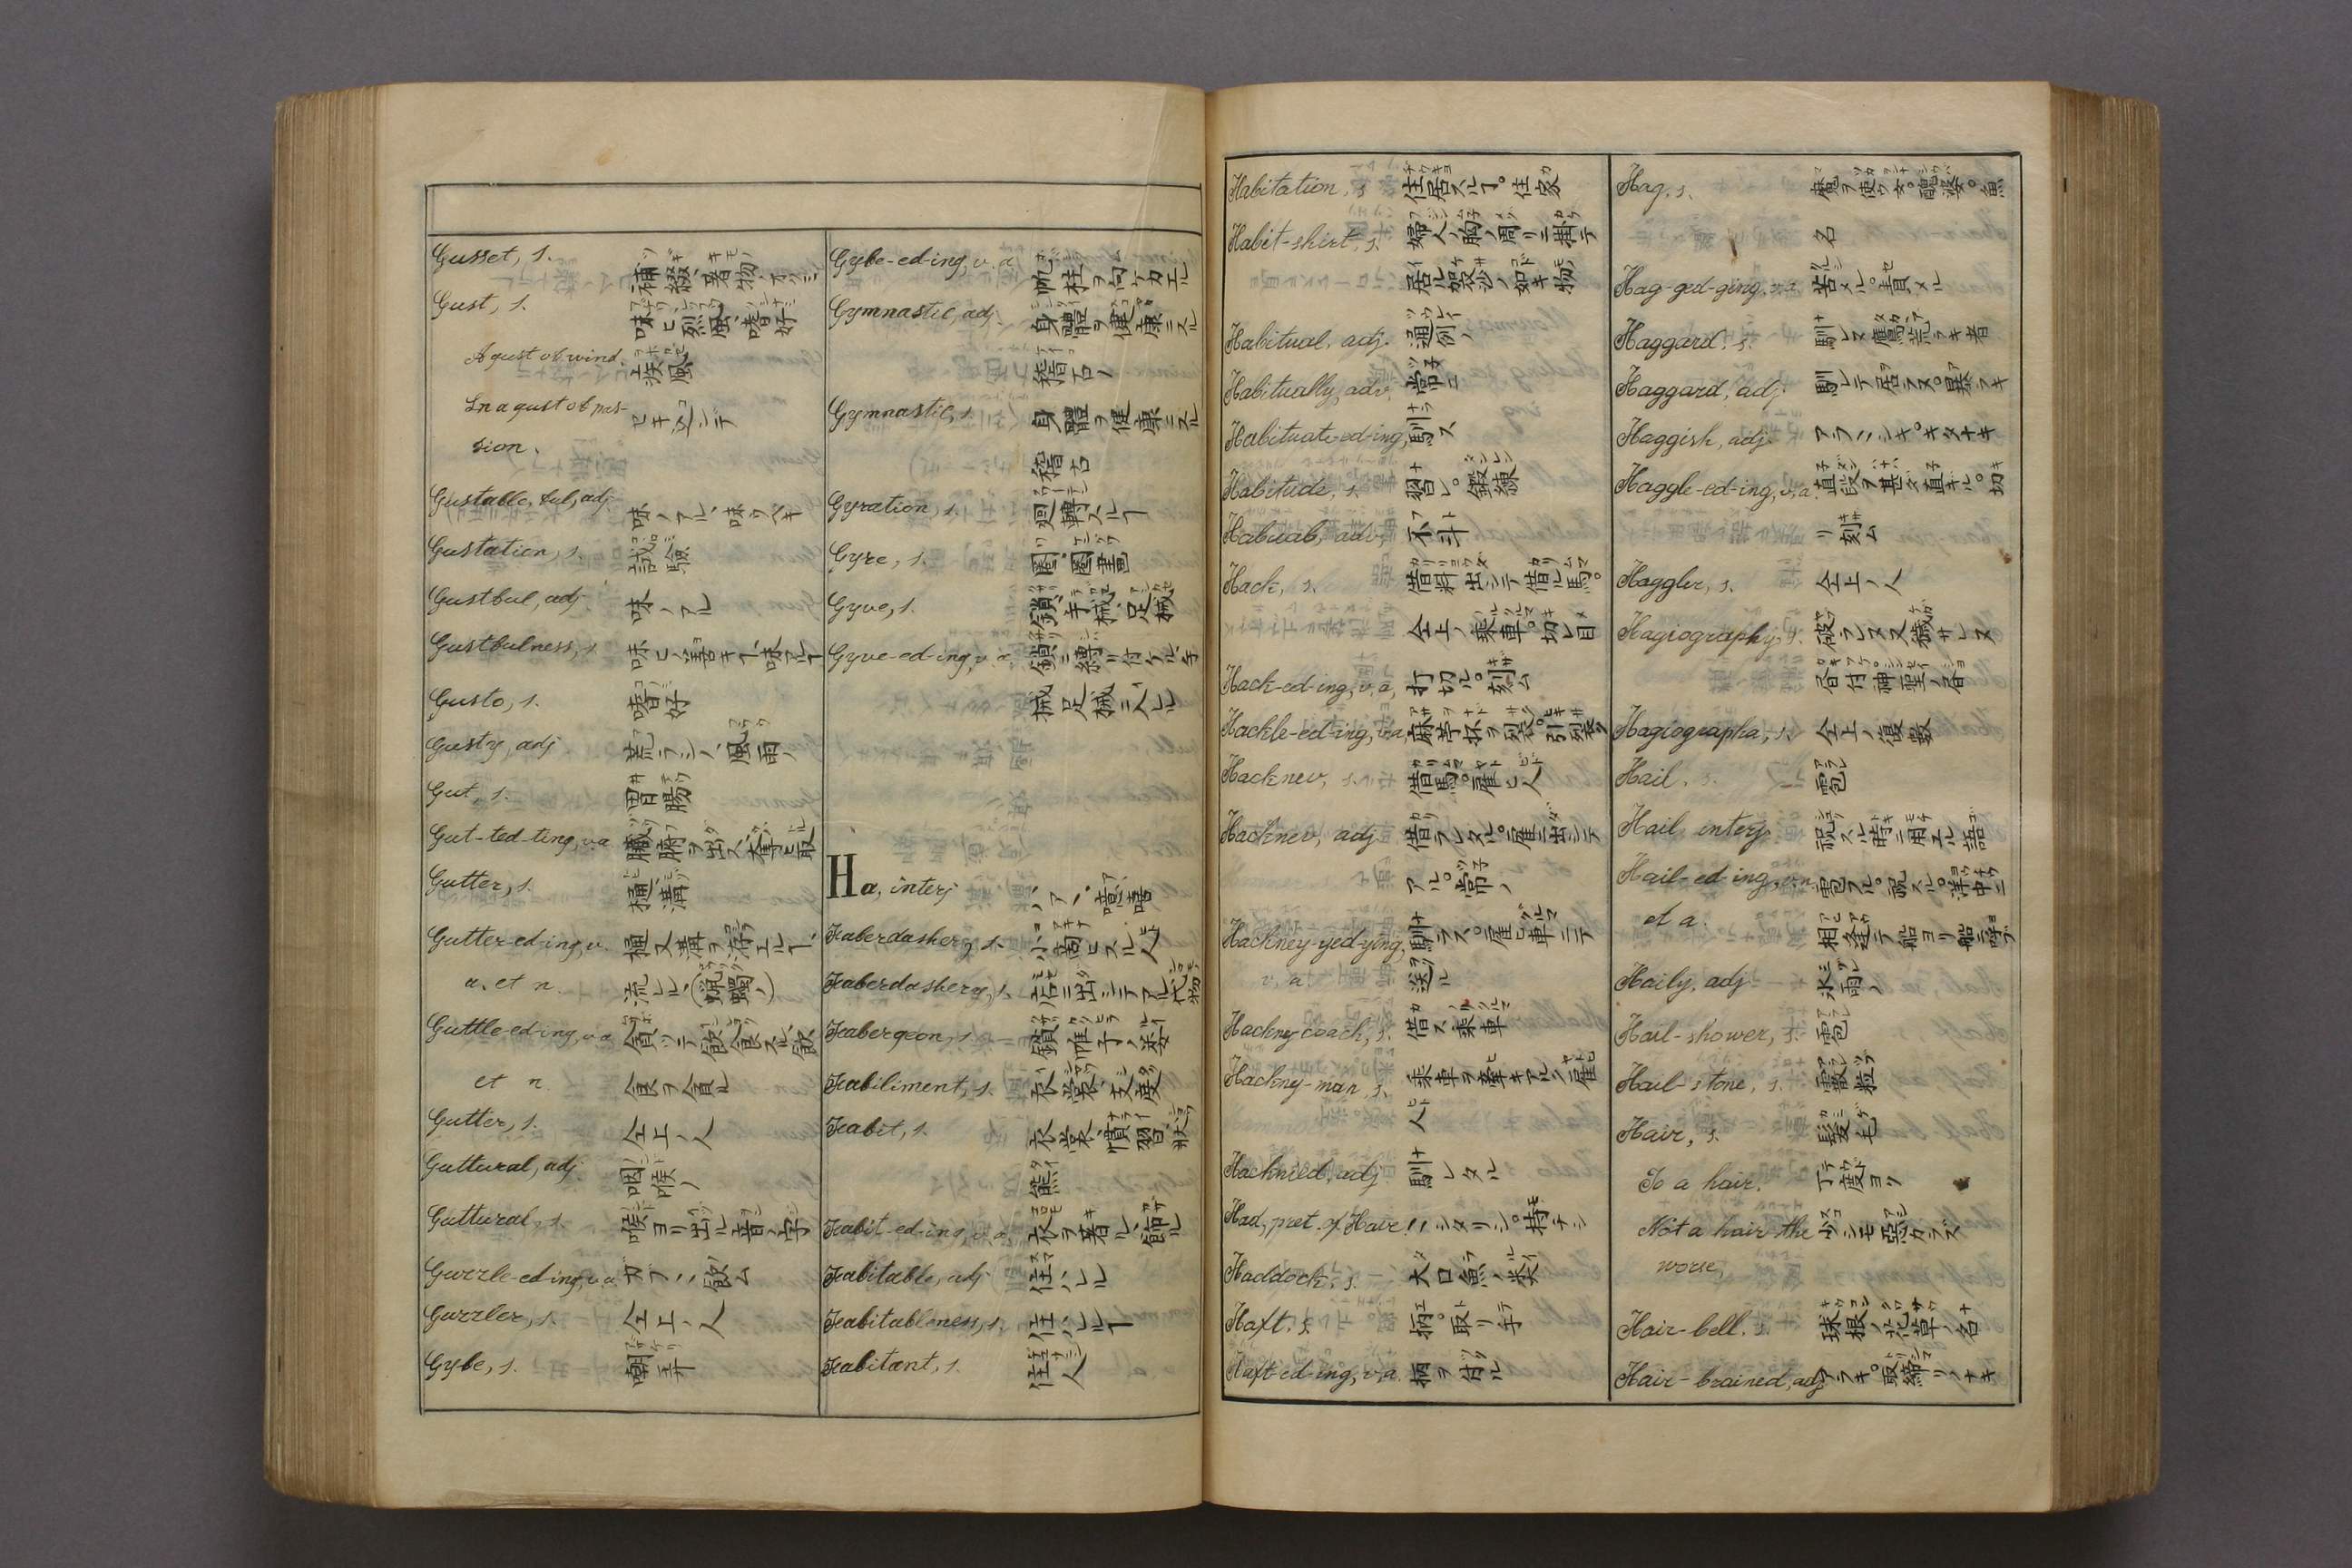 Gusset, s. 補綴、著物ノオクミ
Gust, s. 味ヒ烈風、嗜好
A gust of wind. 疾風
In a gust of pas- セキ込ンデ
sion.
Gustable, ful, adj. 味ノアル、味ウベキ
Gustation, s. 試驗
Gustful, adj. 味ノアル
Gustfulness, s. 味ヒノ善キ
Gusto, s. 嗜好
Gusty, adj. 荒ラシノ、風雨ノ
Gut, s. 胃腸
Gut-ted-ting, v.a. 臓腑ヲ出ス、奪ヒ取
Gutter, s. 樋、溝
Gutter-ed-ing, v. 樋又溝ヲ
a. et n. 流レル、(蝋蠋ノ)
Guttle-ed-ing, v.a. 貪ツテ飲食スル、飲
et n. 食ヲ貪ル
Gutter, s. 仝上ノ人
Guttural, adj. 咽喉ノ
Guttural, s. 喉ヨリ出ル音ノ字
Guzzle-ed-ing, v.a. ガブ〻飲ム
Guzzler, s. 仝上ノ人
Gybe, s. 嘲弄
Gybe-ed-ing, v.a. 帆柱ヲ向ケカエル
Gymnastic, adj. 身體ヲ健康ニスル
稽古ノ
Gymnastic, s. 身體ヲ健康ニスル
稽古
Gyration, s. 廻轉スルヿ
Gyre, s. 圏、圏畵
Gyve, s. 鎖、手械、足械
Gyve-ed-ing, v.a. 鎖ニ縛リ付ケル、手
械足械ニ入レル
Ha, interj. アヽ、噫嘻
Haberdasher, s. 小商ヒスル人
Haberdashery, s. 店ニ出シテアル代物
Habergeon, s. 鎖帷子ノ類
Habiliment, s. 衣裳、支度
Habit, s. 衣裳、慣習、狀
態
Habit-ed-ing, v.a. 衣ヲ著ル、飾ル
Habitable, adj. 住ハレル
Habitableness, s. 住ハレルヿ
Habitant, s. 住人
Habitation, s. 住居スルヿ。住家
Habit-shirt, s. 婦人ノ胸ノ周リニ掛テ
居ル袈裟ノ如キ物
Habitual, adj. 通例ノ
Habitually, adv. 常ニ
Habituate-ed-ing, 馴ス
Habitude, s. 習レ。鍛練
Habnab, adv. 不斗
Hack, s. 借料出シテ借ル馬。
仝上ノ乗車。切レ目
Hack-ed-ing, v.a. 打切ル。刻ム
Hackle-ed-ing, v.a. 麻苧抔ヲ裂。引裂ク
Hackney, s. 借馬。雇ヒ人
Hackney, adj. 借ラレタル。雇ニ出シテ
アル。常ノ
Hackney-yed-ying, 馴ラス。雇ヒ車ニテ
v.a. 送ル
Hackney coach, s. 借ス乗車
Hackney-man, s. 乗車ヲ牽キアルク雇
人
Hacknied, adj. 馴レタル
Had, pret. of Have. シタリシ。持チシ
Haddock, s. 大口魚ノ類
Haft, s. 柄。取リ手
Haft-ed-ing, v.a. 柄ヲ付ル
Hag, s. 魔ヲ使ウ女。醜婆。魚
名
Hag-ged-ging, v.a. 苦メル。責メル
Haggard, s. 馴レヌ鷹。荒ラキ者
Haggard, adj. 馴レテ居ラヌ。暴ラキ
Haggish, adj. アラ〻シキ。キタナキ
Haggle-ed-ing, v.a. 直段ヲ甚ダ直ギル。切
リ刻ム
Haggler, s. 仝上ノ人
Hagiography, s. 破ラレヌ又穢サレヌ
書付神聖ノ書
Hagiographa, s. 仝上ノ復數
Hail, s. 雹
Hail, interj. 祝スル時ニ用エル語
Hail-ed-ing, v.n. 雹フル。祝スル。洋中ニ
et a. 相逢テ船ヨリ船ニ呼ブ
Haily, adj. 氷雨ノ
Hail-shower, s. 雹
Hail-stone, s. 霰粒
Hair, s. 髪毛
To a hair. 丁度ヨリ
Not a hair the 少シモ惡カラズ
worse,
Hair-bell, s. 球根ノ花草ノ名
Hair-brained, adj. アラキ。取締リノナキ